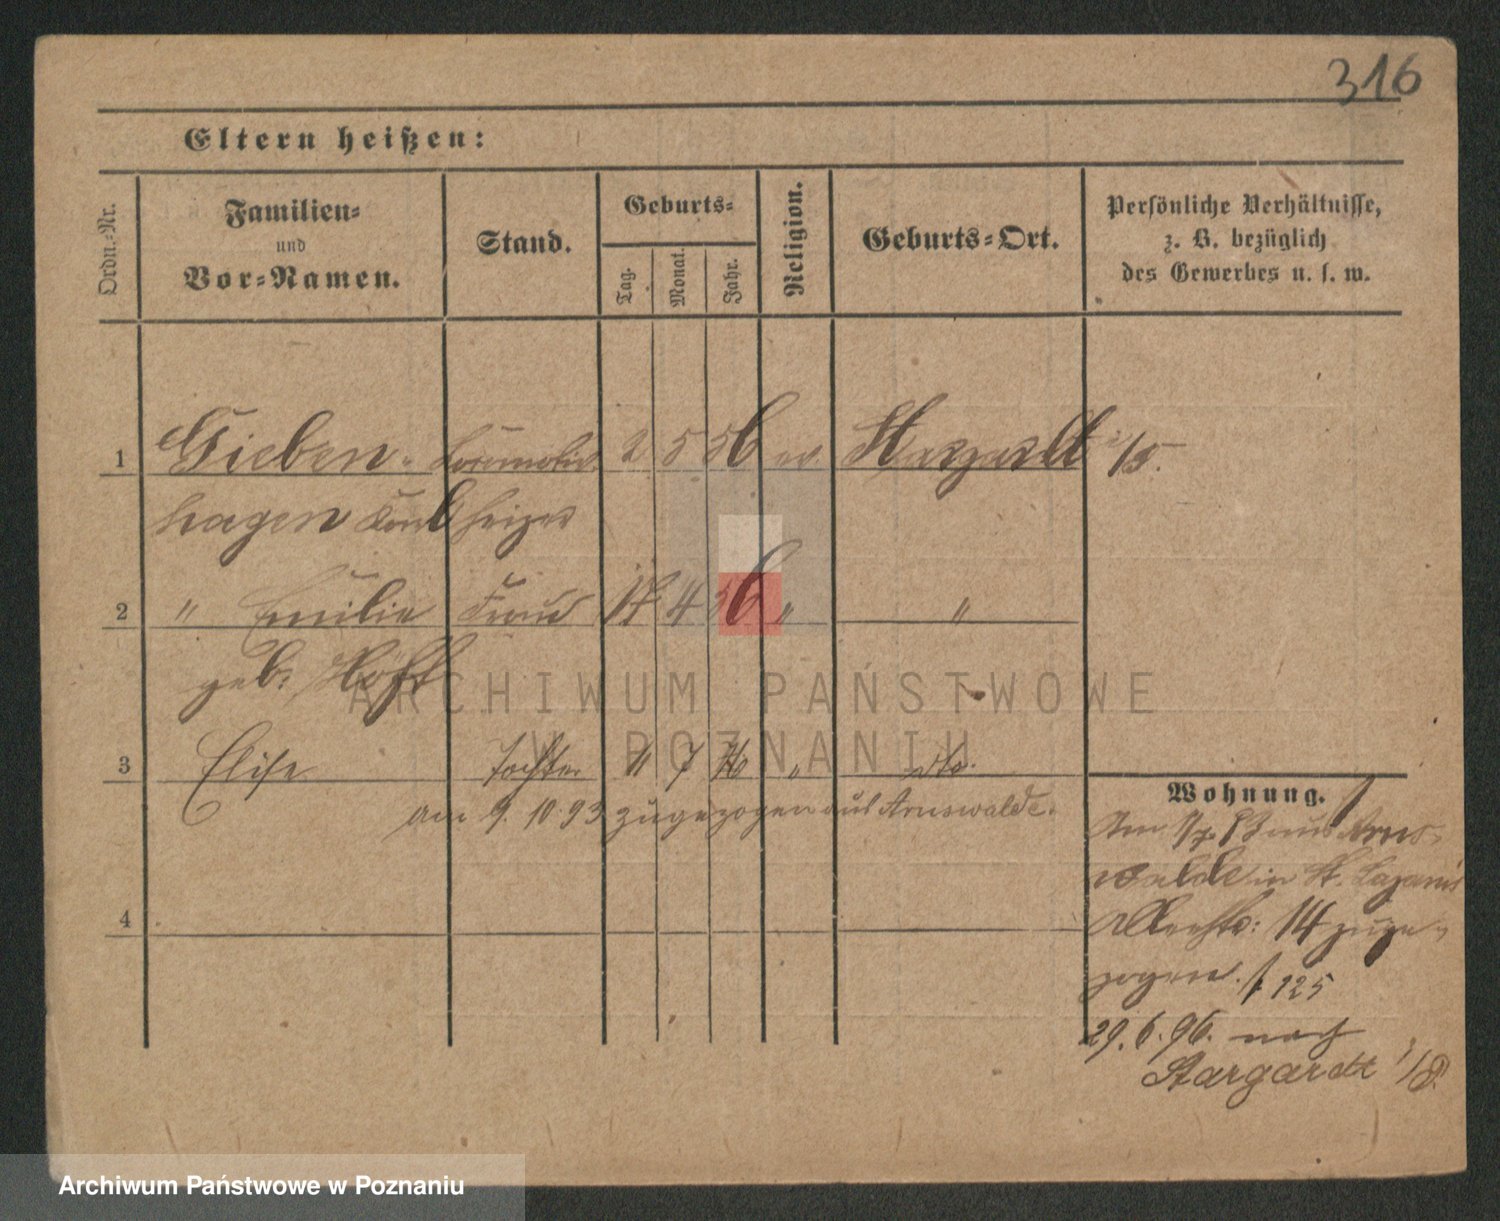 316
Eltern heißen:
Ordn.-Nr.
Familien- und Vor-Namen.
Stand.
Geburts-
Tag.
Monat.
Jahr.
Religion.
Geburts-Ort.
Persönliche Verhältnisse,
z. B. bezüglich
des Gewerbes u. s. w.
1 Gieben- Locomotiv 2 5 56 ev. /5.
hagen heizer
2 " Emilie Frau 17 4 56 " "
geb. Höft
3 Elise Tochter " 7 " do.
am 9. 10. 93 zugezogen aus Arnswalde.
4
Wohnung.
Am 1/7. 93 aus Arns-
walde in St. Lazarus
14 zuge-
zogen. 125
29. 6. 96. nach
Stargardt
ARCHIWUM PAŃSTWOWE
W POZNANIU
Archiwum Państwowe w Poznaniu